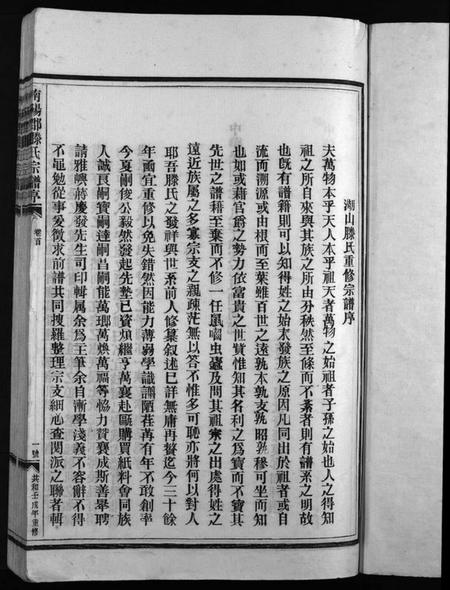 湖山滕氏重修宗譜序
夫萬物本乎天人本乎祖天者萬物之始祖者子孫之始也人之得知
祖之所自來與其族之所由分秩然至條而不紊者則有譜系之明故
也旣有譜籍則可以知得姓之始末發族之原因凡同出於祖者或自
流而溯源或由根而至葉雖百世之遠孰本孰支孰昭孰穆可坐而知
也如或藉官爵之勢力依富貴之世資惟知其名利之為寶而不寶其
先世之譜籍至棄而不修一任鼠嚙虫蠹及問其祖宗之出處得姓之
遠近族屬之多寡宗支之親疎茫無以答不惟多可恥亦將何以對人
耶吾滕氏之發祥與世系前人修纂叙述已詳無庸再贅迄今三十餘
年亟宜重修以免失錯然因能力薄弱學識譾陋荏苒有年不敢創率
今夏嗣俊公毅然發起先墊己資煩繼亨萬襄赴甌購買紙料會同族
人誠良嗣寶嗣達嗣昌嗣能萬瑯萬煥萬福等恊力贊襄成斯善舉聘
請雅嶼蔣慶發先生司印輯属余為主筆余自漸學淺義不容辭不得
不黽勉從事爰徵求前譜共同搜羅整理宗支細心查閱派之聯者輯
南陽郡滕氏宗譜序
卷首
一號
共和壬戌年重修